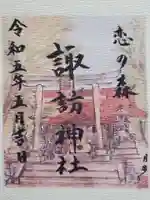 恋の森
諏訪神社
令和五年五月吉日